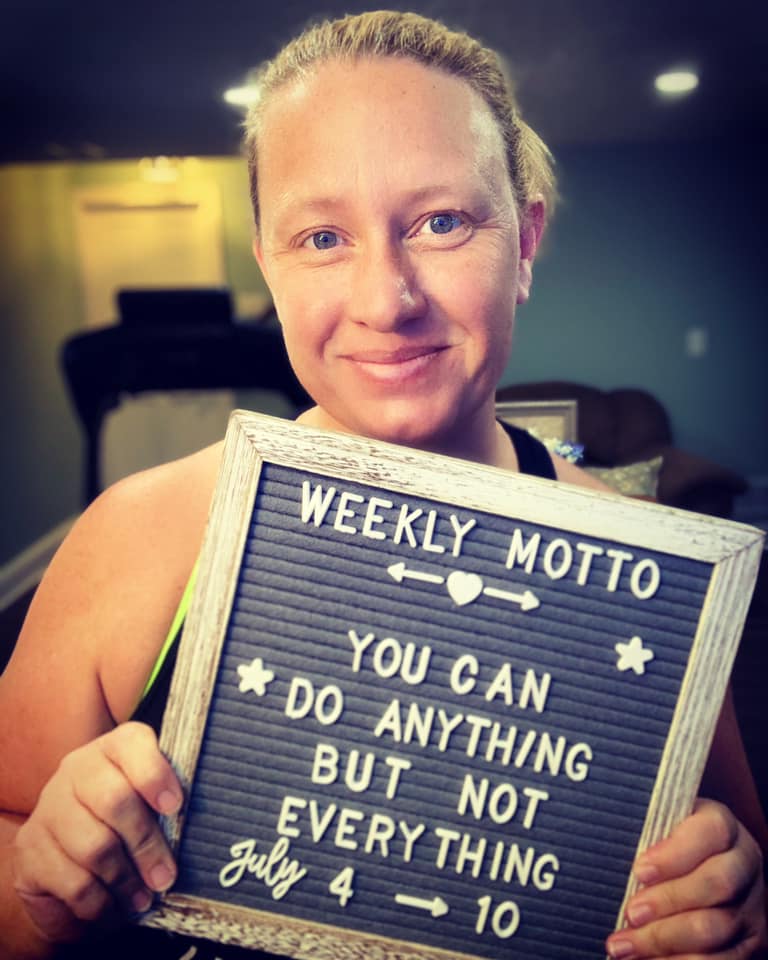 WEEKLY MOTTO
YOU CAN
DO ANYTHING
BUT NOT
EVERYTHING
July 4 → 10